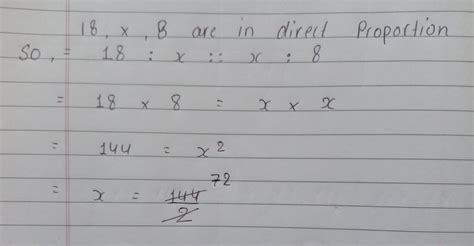 18, x, 8 are in direct Proportion
So, = 18 : x :: x : 8
= 18 × 8 = x × x
= 144 = x²
= x = 144/2 72